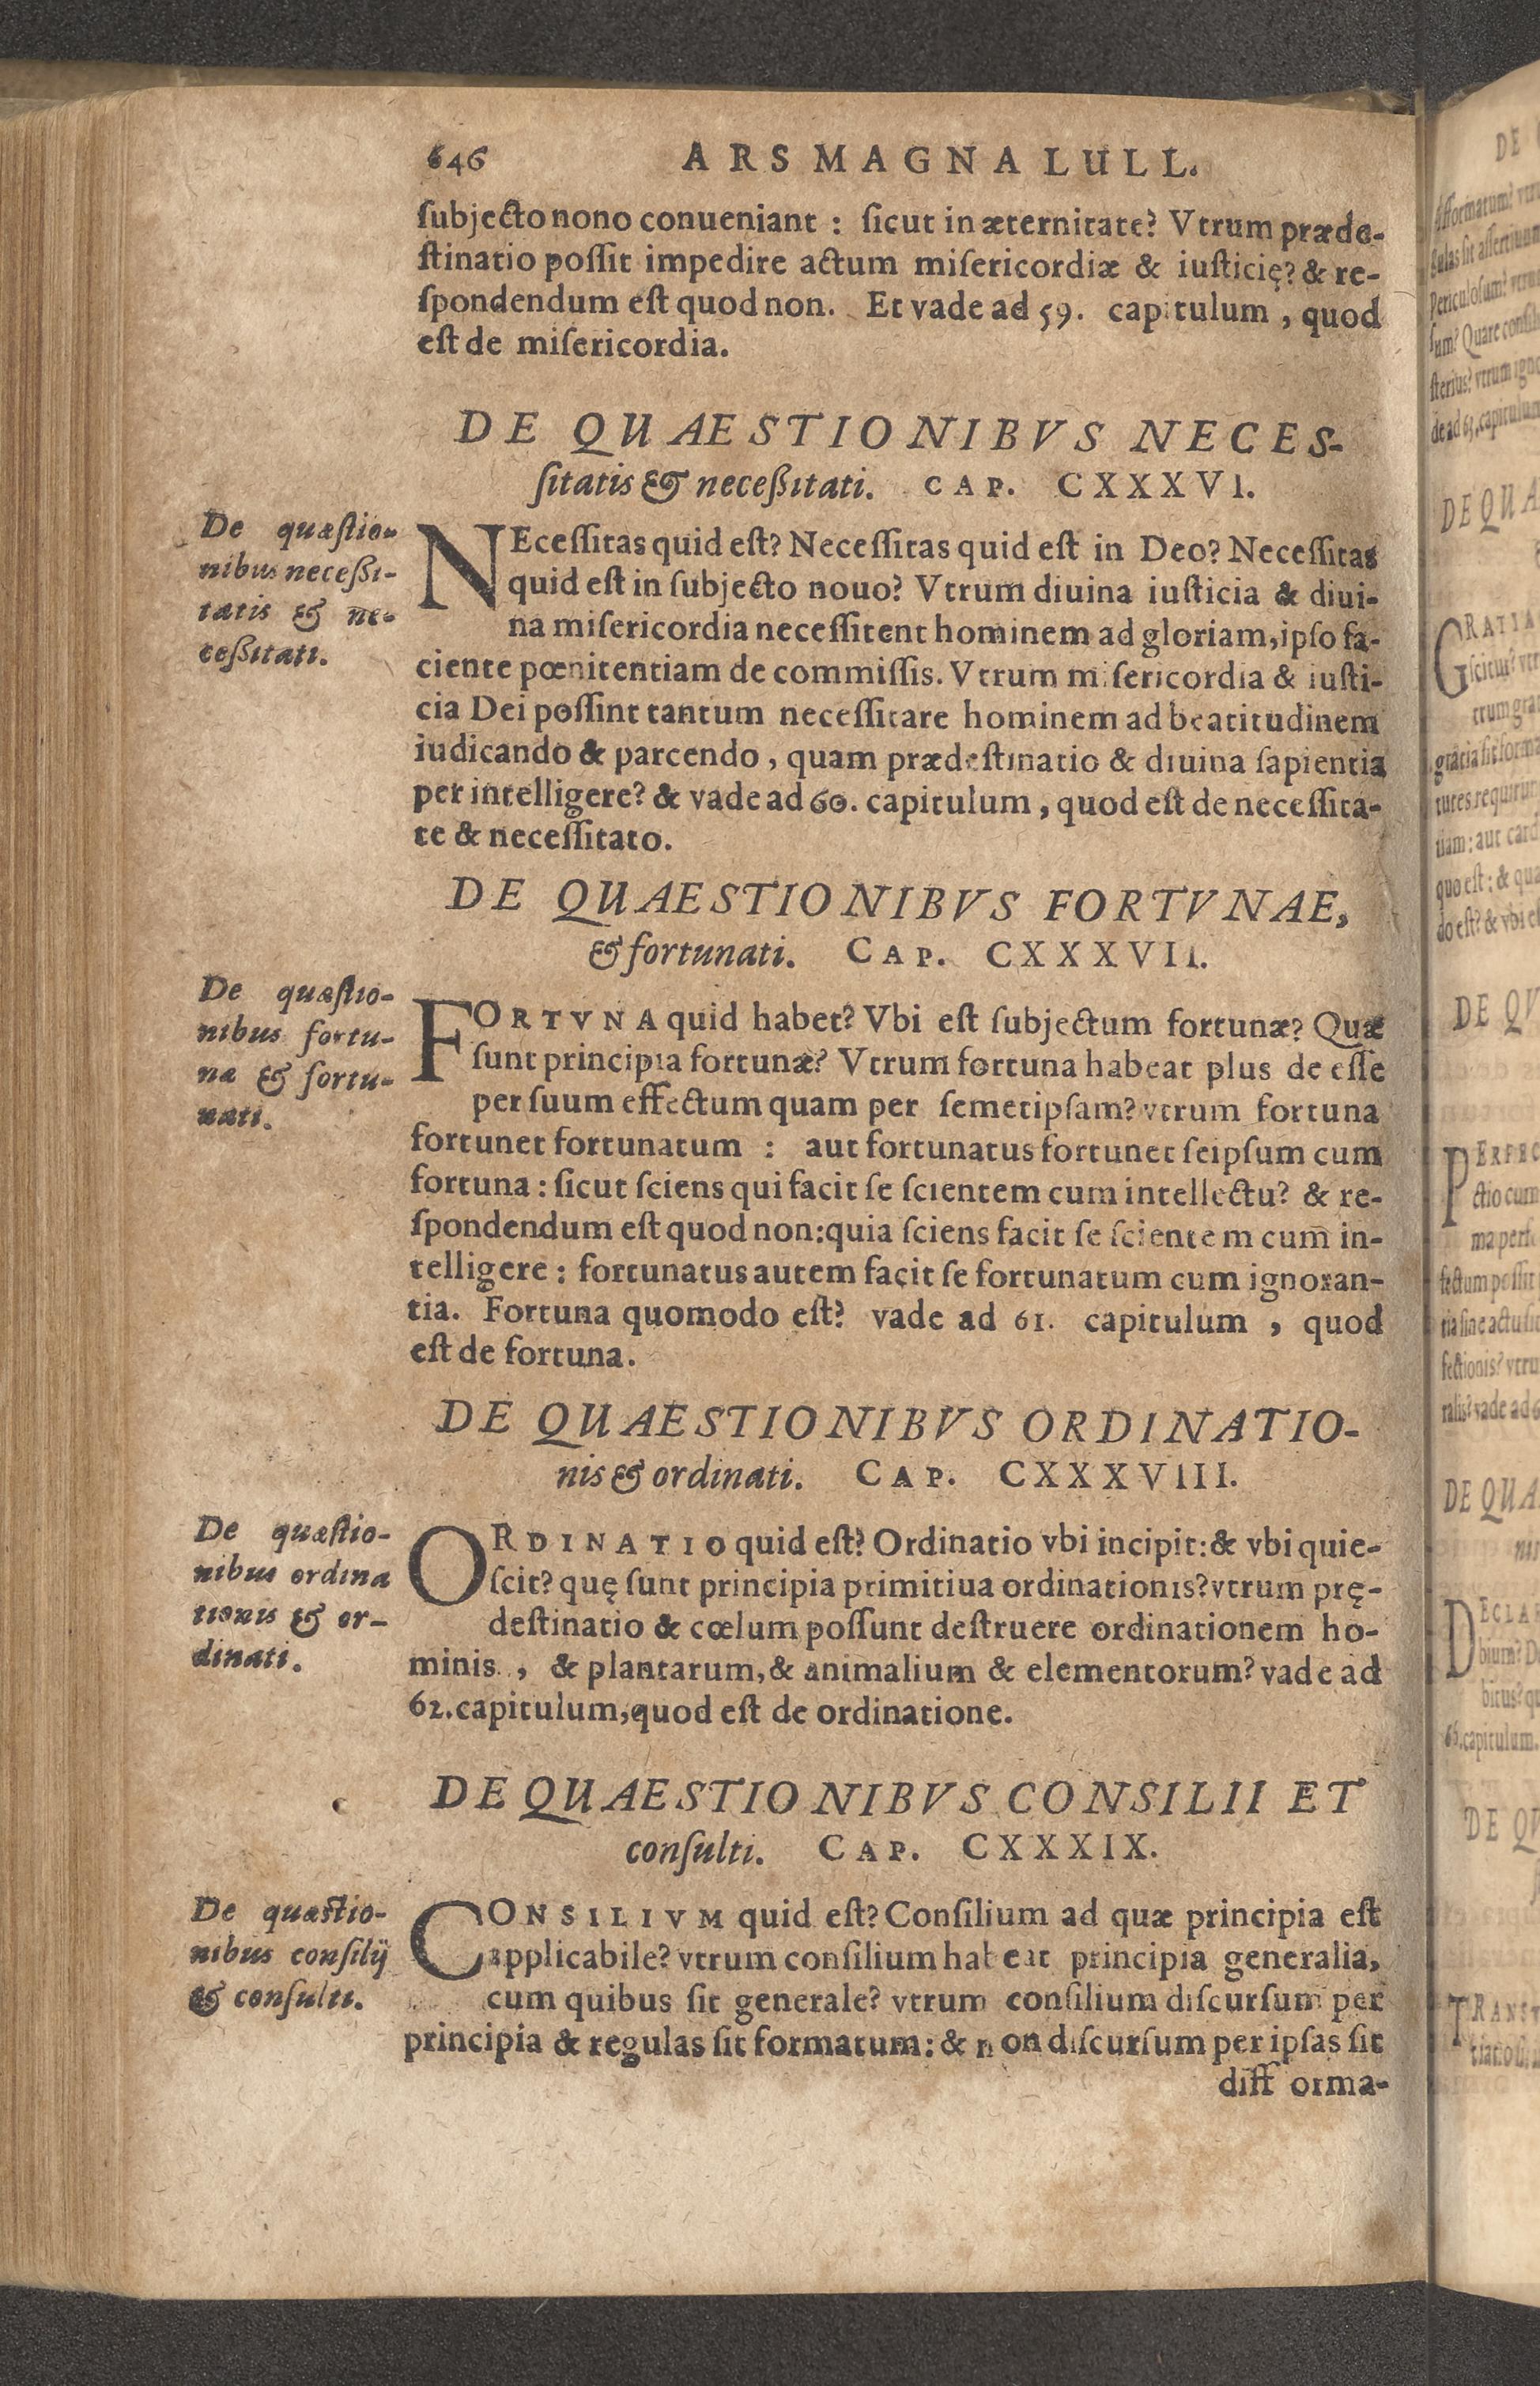 646 ARS MAGNA LULL.
ſubjecto nono conueniant : ſicut in æternitate? Vtrum præde-
ſtinatio poſſit impedire actum miſericordiæ & iuſticię? & re-
ſpondendum eſt quod non. Et vade ad 59. capitulum , quod
eſt de miſericordia.
DE QUAESTIONIBVS NECES-
ſitatis & neceßitati. CAP. CXXXVI.
De quæſtio-
nibus neceßi-
tatis & ne-
ceßitati.
NEceſſitas quid eſt? Neceſſitas quid eſt in Deo? Neceſſitas
quid eſt in ſubjecto nouo? Vtrum diuina iuſticia & diui-
na miſericordia neceſſitent hominem ad gloriam, ipſo fa-
ciente pœnitentiam de commiſſis. Vtrum miſericordia & iuſti-
cia Dei poſſint tantum neceſſitare hominem ad beatitudinem
iudicando & parcendo , quam prædeſtinatio & diuina ſapientia
per intelligere? & vade ad 60. capitulum , quod eſt de neceſſita-
te & neceſſitato.
DE QUAESTIONIBVS FORTVNAE,
& fortunati. CAP. CXXXVII.
De quæſtio-
nibus fortu-
næ & fortu-
nati.
FORTVNA quid habet? Vbi eſt ſubjectum fortunæ? Quæ
ſunt principia fortunæ? Vtrum fortuna habeat plus de eſſe
per ſuum effectum quam per ſemetipſam? vtrum fortuna
fortunet fortunatum : aut fortunatus fortunet ſeipſum cum
fortuna : ſicut ſciens qui facit ſe ſcientem cum intellectu? & re-
ſpondendum eſt quod non: quia ſciens facit ſe ſciente m cum in-
telligere : fortunatus autem facit ſe fortunatum cum ignoran-
tia. Fortuna quomodo eſt? vade ad 61. capitulum , quod
eſt de fortuna.
DE QUAESTIONIBVS ORDINATIO-
nis & ordinati. CAP. CXXXVIII.
De quæſtio-
nibus ordina
tionis & or-
dinati.
ORDINATIO quid eſt? Ordinatio vbi incipit: & vbi quie-
ſcit? quę ſunt principia primitiua ordinationis? vtrum prę-
deſtinatio & cœlum poſſunt deſtruere ordinationem ho-
minis , & plantarum, & animalium & elementorum? vade ad
62. capitulum, quod eſt de ordinatione.
DE QUAESTIONIBVS CONSILII ET
conſulti. CAP. CXXXIX.
De quæſtio-
nibus conſilij
& conſulti.
CONSILIVM quid eſt? Conſilium ad quæ principia eſt
applicabile? vtrum conſilium habeat principia generalia,
cum quibus ſit generale? vtrum conſilium diſcurſum per
principia & regulas ſit formatum: & non diſcurſum per ipſas ſit
diff orma-